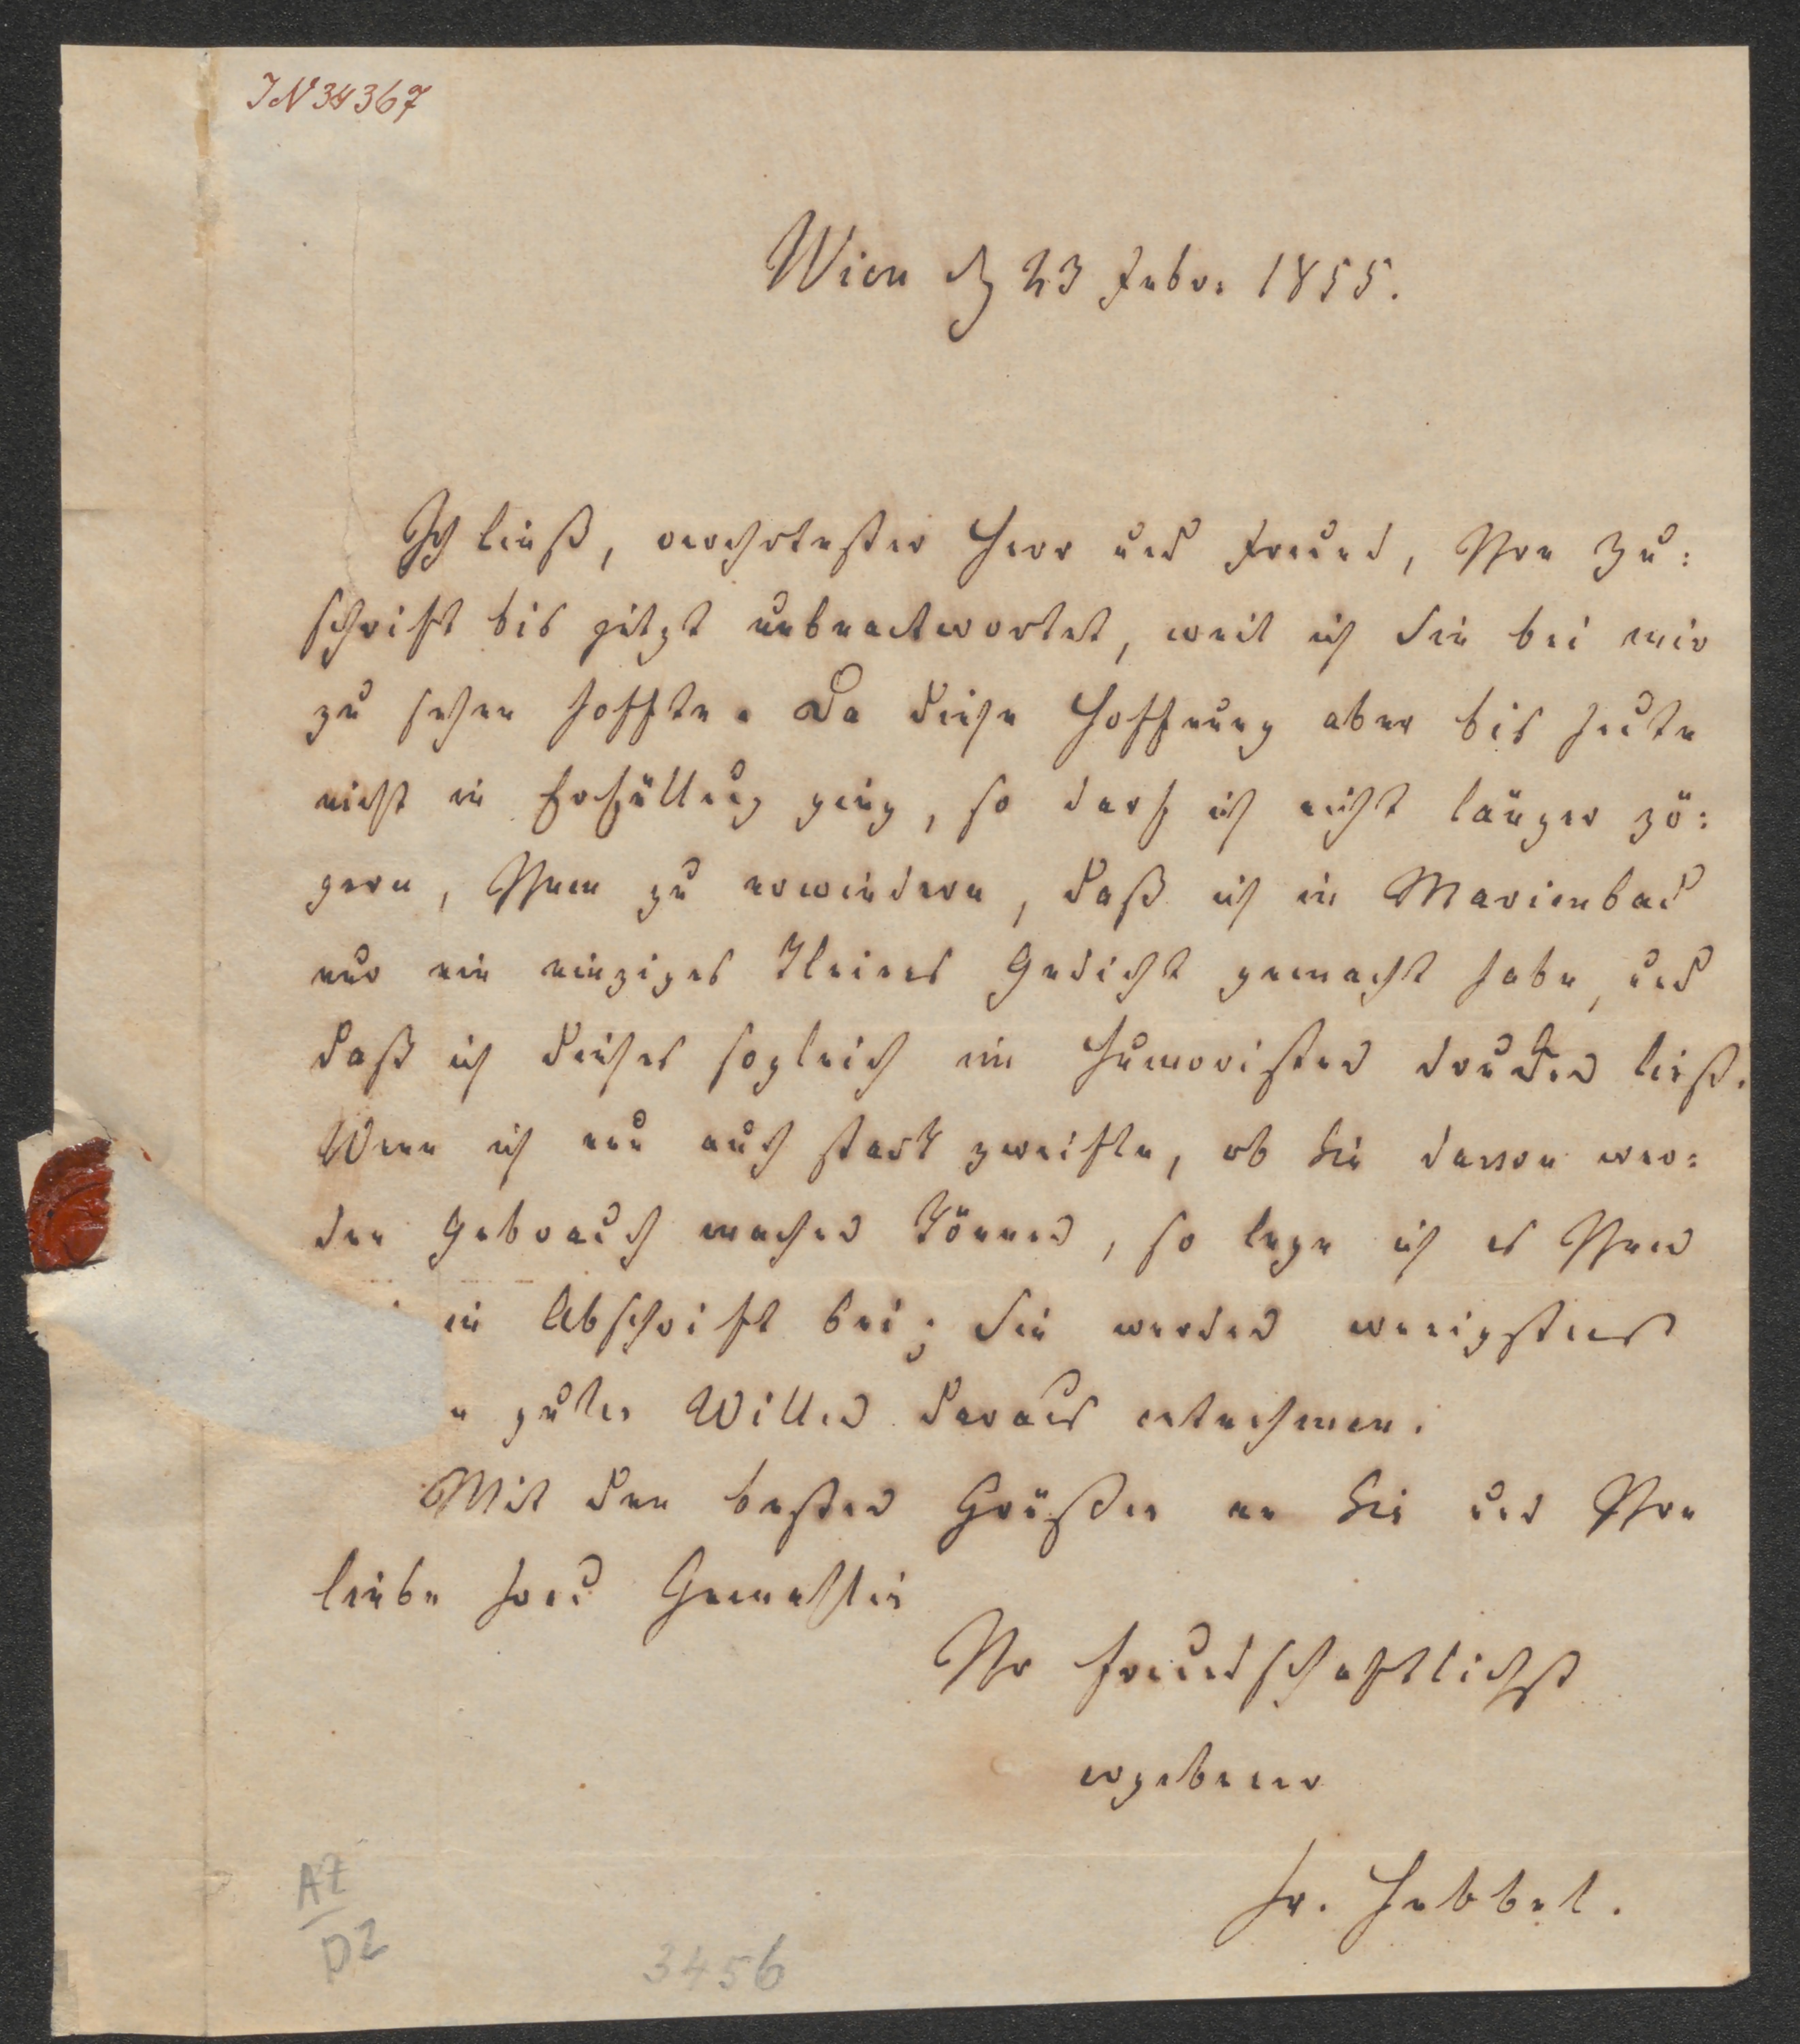 IN 34367
Wien d 23 Febr: 1855.
Ich ließ, verehrtester Herr und Freund, Ihre Zu:
schrift bis jetzt unbeantwortet, weil ich Sie bei mir
zu sehen hoffte. Da diese Hoffnung aber bis heute
nicht in Erfüllung ging, so darf ich nicht länger zö:
gern, Ihnen zu erwiedern, daß ich in Marienbad
nur ein einziges kleines Gedicht gemacht habe, und
daß ich dieses sogleich im Humoristen drucken ließ.
Wenn ich nun auch stark zweifle, ob Sie davon wer:
den Gebrauch machen können, so lege ich es Ihnen
in Abschrift bei; Sie werden wenigstens
n guten Willen daraus entnehmen.
Mit den besten Grüßen an Sie und Ihre
liebe Frau Gemahlin
Ihr freundschaftlichst
ergebener
Fr. Hebbel.
AZ
DZ
3456